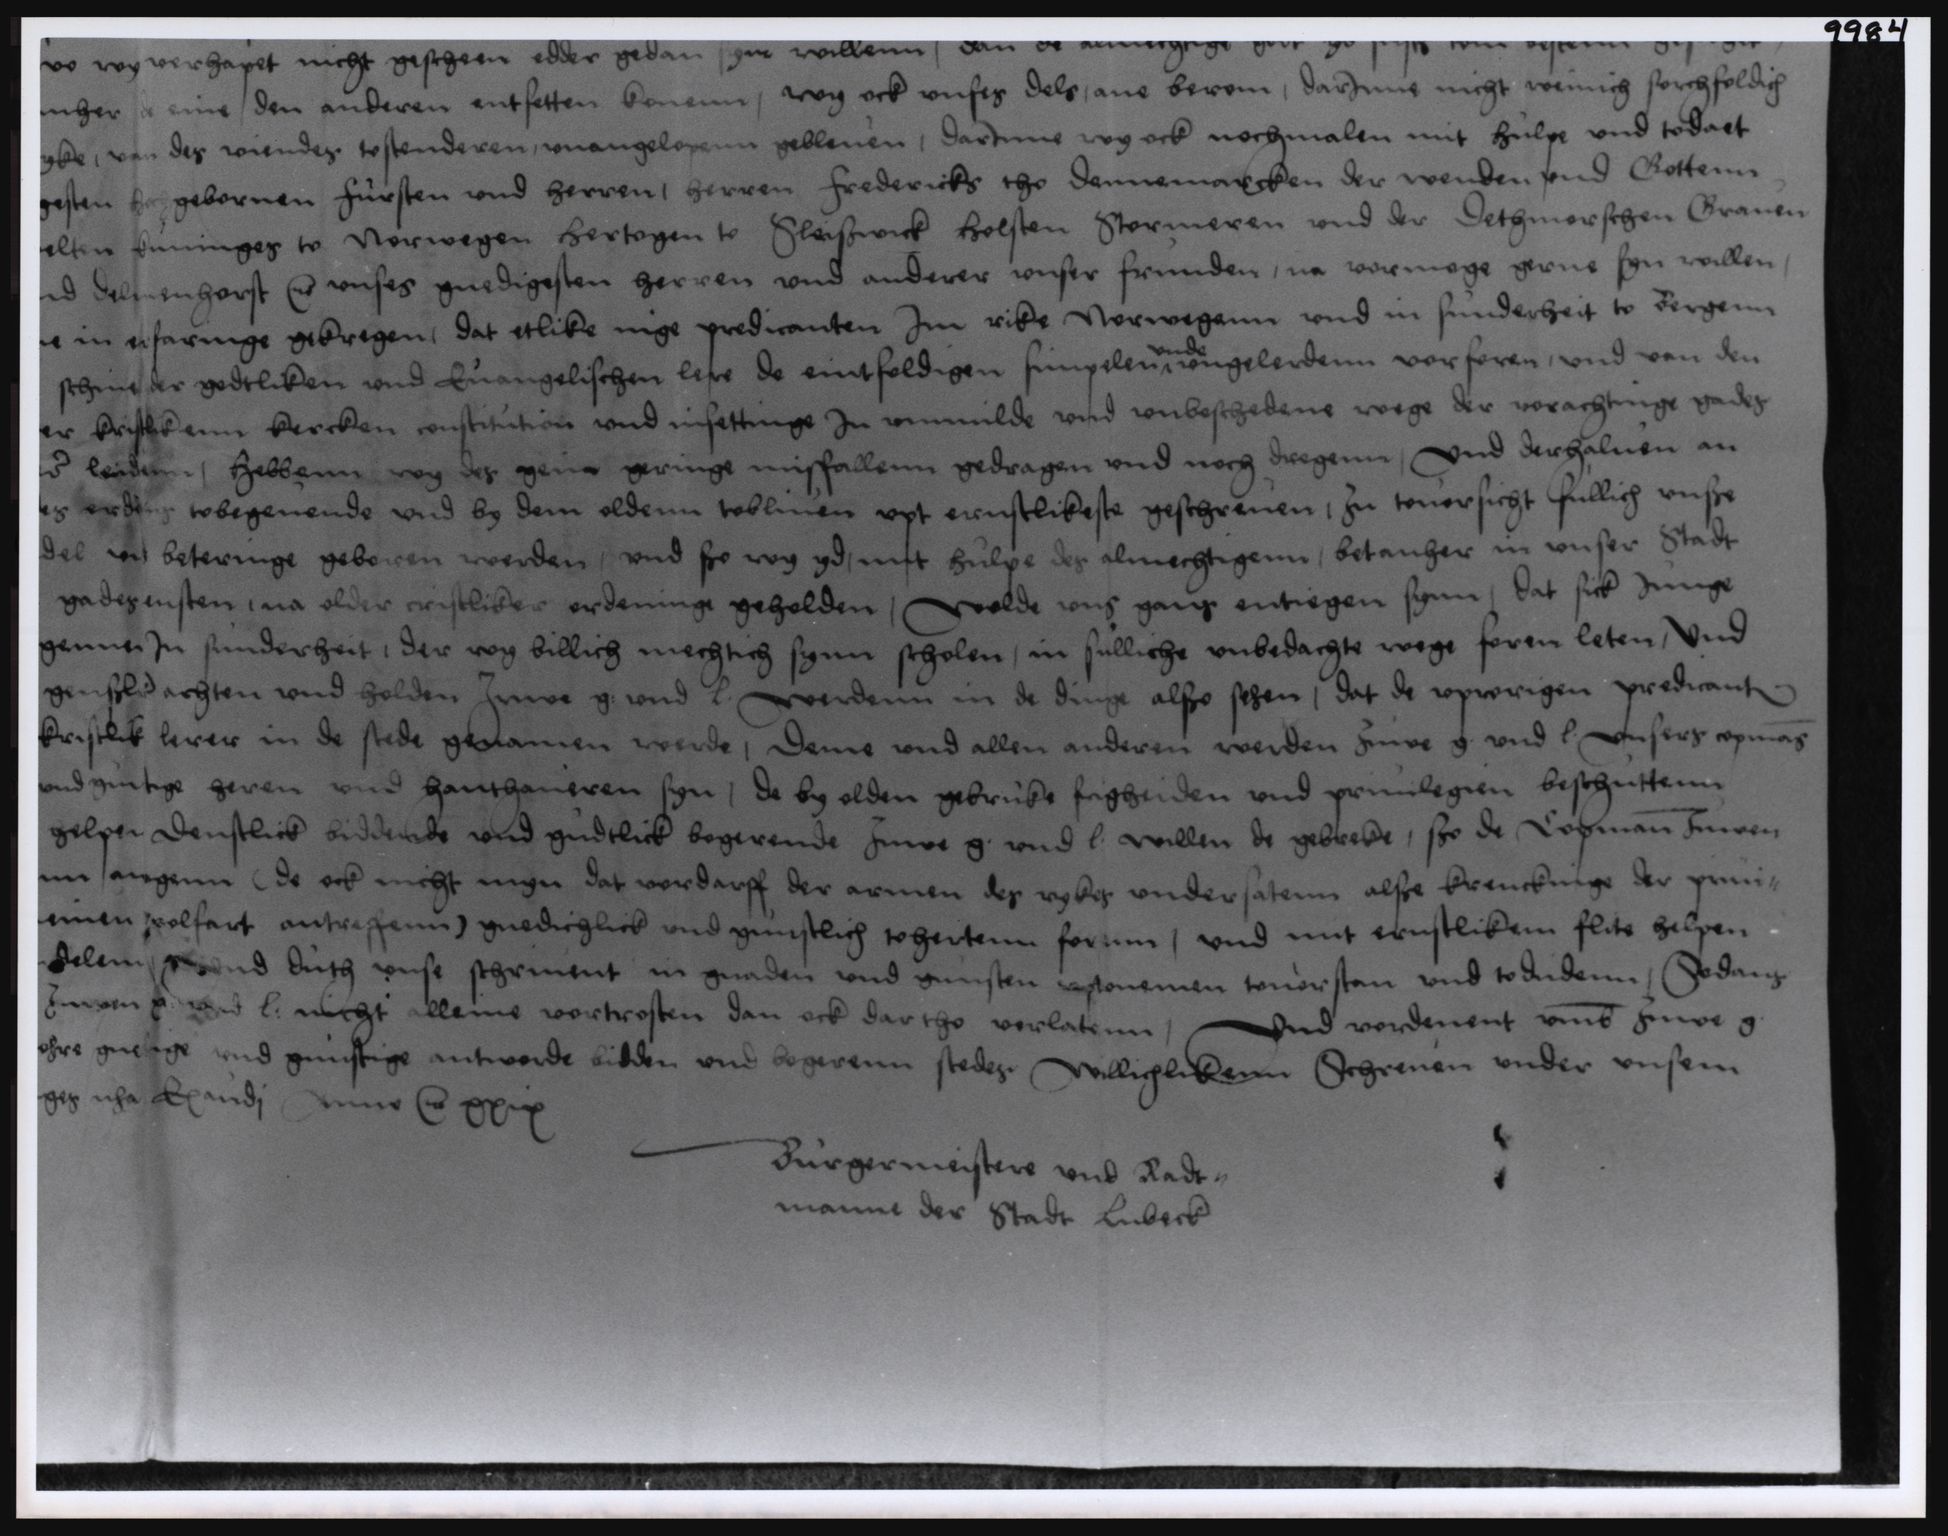 9984
wy verhapet nicht gescheen edder gedan syn willenn / dan de almechtige got
nher de eine / den anderen entsetten konenn / wy ock unses dels / ane berom / darInne nicht weinich sorchfoldich
yke / van des viendes tostenderen / unangelopenn gebleven / darInne wy ock nochmalen mit hulpe und todaet
gesten hochgebornen Fursten und herren / herren Fredericks tho Dennemarcken der wenden und Gottenn
elten kuninges to Norwegen Hertogen to Sleswick Holsten Stormeren und der Dethmerschen Graven
nd Delmenhorst unses gnedigesten herren und anderer unser frunden / na vormoge gerne syn willen /
ne in erfaringe gekregen / dat etlike nige predicanten Im rike Norwegenn und in sunderheit to Bergenn
schine der godtliken und Euangelischen lere de eintfoldigen simpelen unde ungelerdenn vorforen / und van den
er kristlikenn kercken constitution und insettinge In unmilde und unbeschedene wege der vorachtinge gades
leidenn / Hebbenn wy des gein geringe misfallenn gedragen und noch dregenn / Und derhaluen an
es tobegeuende und by dem oldenn tobliuen upt ernstlikeste geschreuen / In touorsicht sullich unsse
del beteringe geboren werden / und sso wy yd / mit hulpe des almechtigenn / betanher in unser Stadt
gadesensten / na older cristliker ordeninge geholden / Wolde uns gans entiegen synn / dat sick Junge
gennen In sunderheit / der wy billich mechtich synn scholen / in sulliche unbedachte wege foren leten / Und
genszlich achten und holden Juwe g. und l. werdenn in de dinge alsso sehen / dat de uprorigen predicanten
kristlik lerer in de stede genamen werde / Deme und allen anderen werden Juwe g. und l. unsers copmans
und gunstige heren und hanthaueren syn / de by olden gebruke frigheiden und priuilegien beschuttenn
helpen Denstlick biddende und gudtlick begerende Juwe g. und l. willen de gebreke / sso de Copman Juwen
nn angenn (de ock nicht myn dat vordarff der armen des rykes undersatenn alsse krenckinge der priui-
einen wolfart antreffenn) gnedichlick und gunstlich tohertenn forenn / und mit ernstlikem flite helpen
delenn und duth unse schriuent in gnaden und gunsten uptonemen touorstan und todudenn / Sodans
Juwen g. und l. nicht alleine vortrosten dan ock dartho verlatenn / Und vordenent umb Juwe g.
ohre gnedige und gunstige antworde bidden und begerenn stedes Willichlikenn Schreuen under unsem
ges nha Exaudj Anno xxix
Burgermeistere und Radt-
manne der Stadt Lubeck